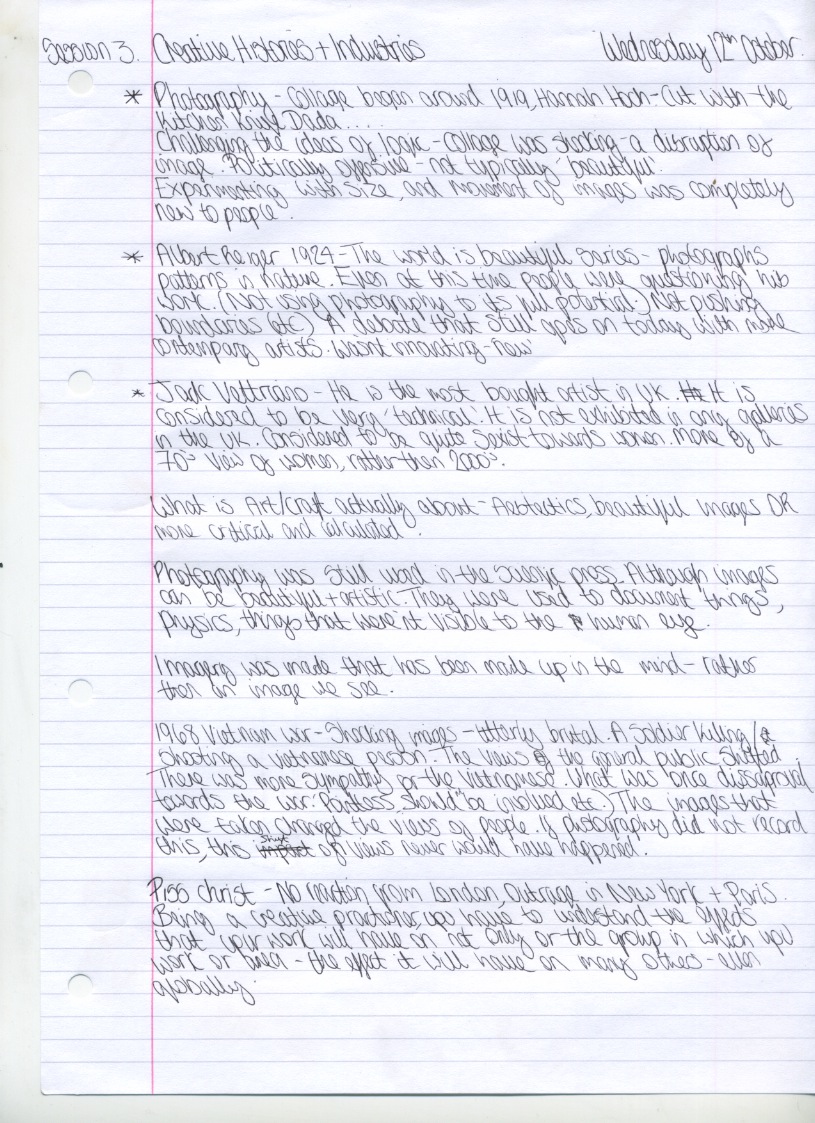 Session 3. Creative Histories + Industries Wednesday 12th October.
* Photography - Collage began around 1919, Hannah Hoch - Cut with the
Kitchen Knife Dada ....
Challenging the ideas of logic - Collage was shocking - a disruption of
image. Politically opposive - not typically 'beautiful'.
Experimenting with size, and movement of images was completely
new to people.
* Albert Renger 1924 - The world is beautiful series - photographs
patterns in nature. Even at this time people were questioning his
work. (Not using photography to its full potential.) Not pushing
boundaries (etc) A debate that still goes on today with more
contempary artists. Wasnt innovating - 'new'
* Jack Vettriano - He is the most bought artist in UK. It is
considered to be very 'technical'. It is not exhibited in any galleries
in the UK. Considered to be quite sexist towards women. More of a
70's view of women, rather than 2000's.
What is Art/craft actually about - Aesthetics, beautiful images OR
more critical and calculated.
Photography was still used in the press. Although images
can be beautiful + artistic. They were used to document 'things',
physics, things that were'nt visible to the human eye.
Imagery was made that has been made up in the mind - rather
then an image we see.
1968 Vietnam war - Shocking images - Utterly brutal. A Soldier killing/
shooting a vietnamese person. The views of the general public shifted.
There was more sympathy for the Vietnamese. What was once dissaproval
towards the war. Pointless, should be involved etc.) The images that
were taken changed the views of people. If photography did not record
this, this shift of views never would have happened.
Piss Christ - No reaction from London, Outrage in New York + Paris.
Being a creative practioner, you have to understand the effects
that your work will have on not only or the group in which you
work or area - the effect it will have on many others - even
globally.